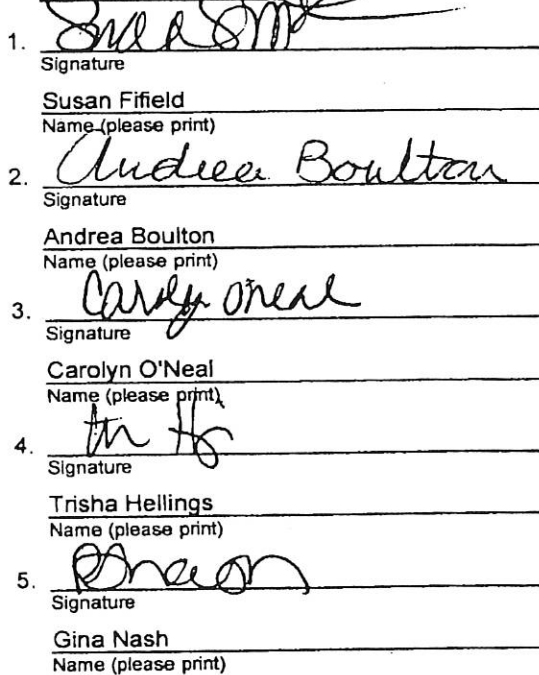 1.
Signature
Susan Fifield
Name (please print)
2. Andrea Boulton
Signature
Andrea Boulton
Name (please print)
3. Carolyn Oneal
Signature
Carolyn O'Neal
Name (please print)
4.
Signature
Trisha Hellings
Name (please print)
5.
Signature
Gina Nash
Name (please print)